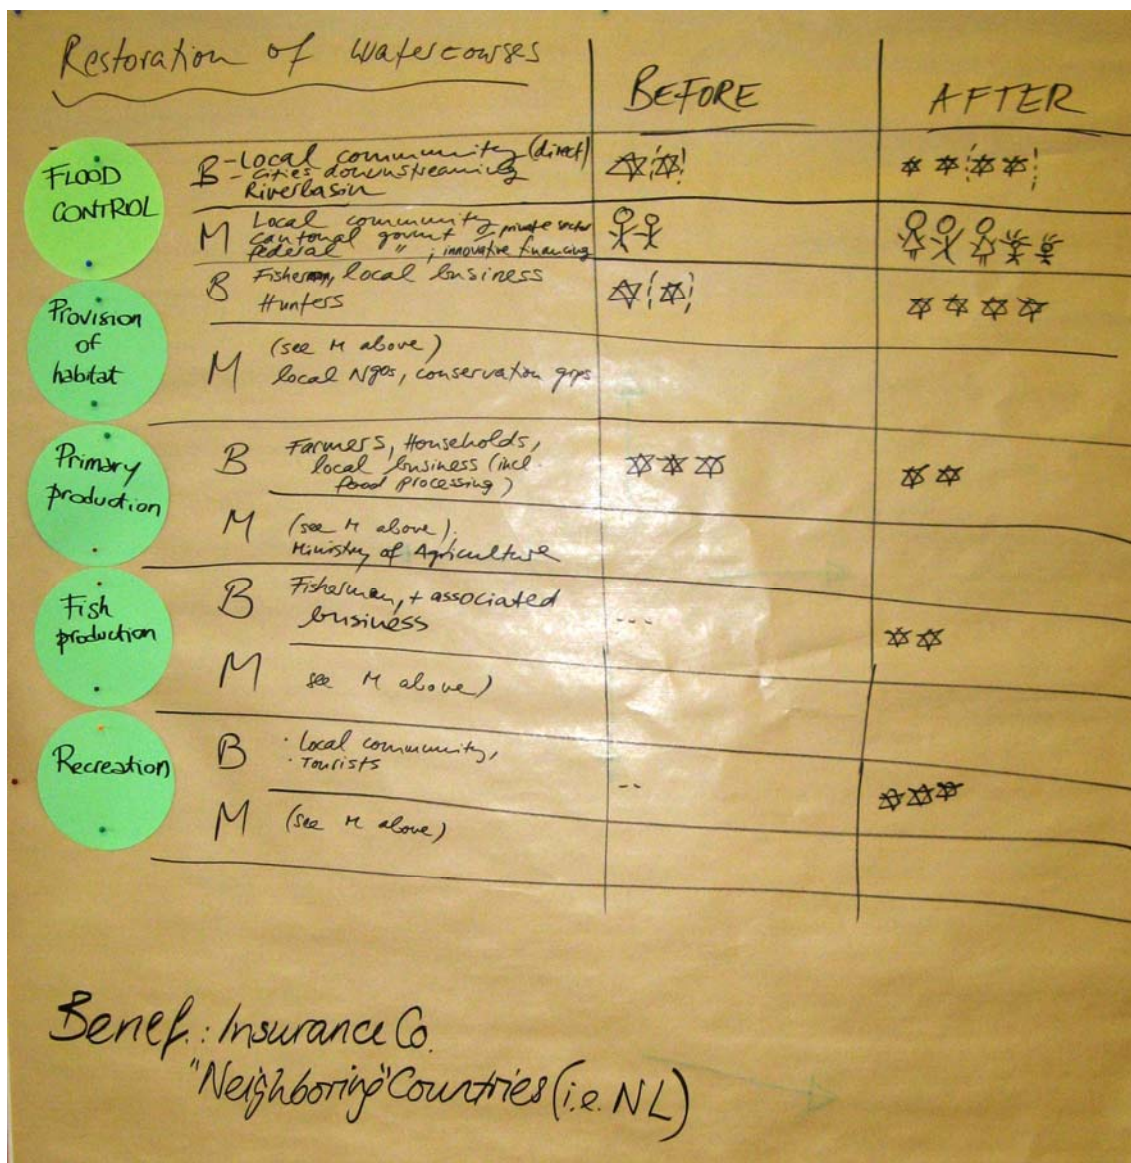 Restoration of Watercourses
BEFORE
AFTER
FLOOD
CONTROL
B - Local community (direct)
- Cities downstreaming
Riverbasin
M Local community, private sector
cantonal govmt
federal " ; innovative financing
Provision
of
habitat
B Fisherman, local business
Hunters
M (see M above)
local Ngos, conservation grps
Primary
production
B Farmers, Households,
local business (incl.
food processing)
M (see M above).
Ministry of Agriculture
Fish
production
B Fisherman, + associated
business
---
M see M above)
Recreation
B · Local community,
· Tourists
--
M (see M above)
Benef.: Insurance Co.
"Neighboring" Countries (i.e. NL)